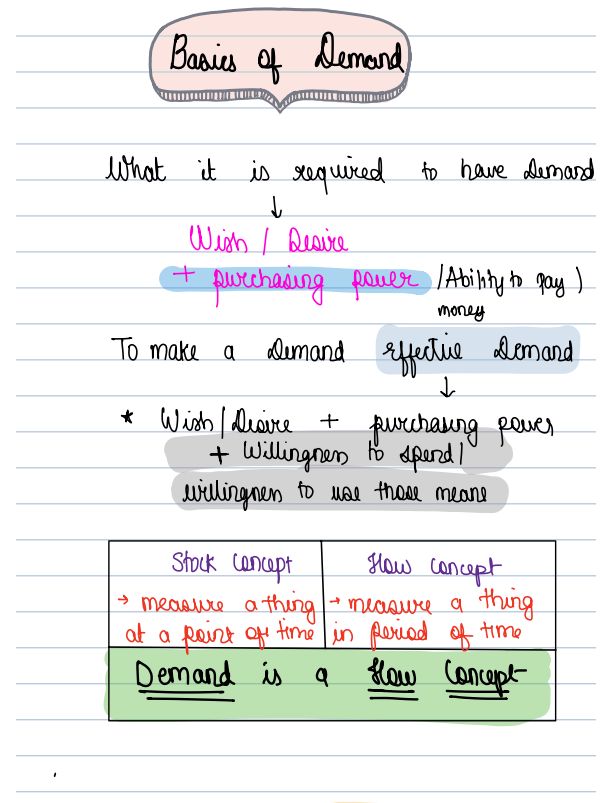 Basics of Demand
What it is required to have Demand
↓
Wish / Desire
+ purchasing power /Ability to pay )
money
To make a Demand effective Demand
↓
* Wish/Desire + purchasing power
+ Willingness to spend/
willingness to use those means
Stock Concept
→ measure a thing
at a point of time
Flow Concept
→ measure a thing
in period of time
Demand is a Flow Concept